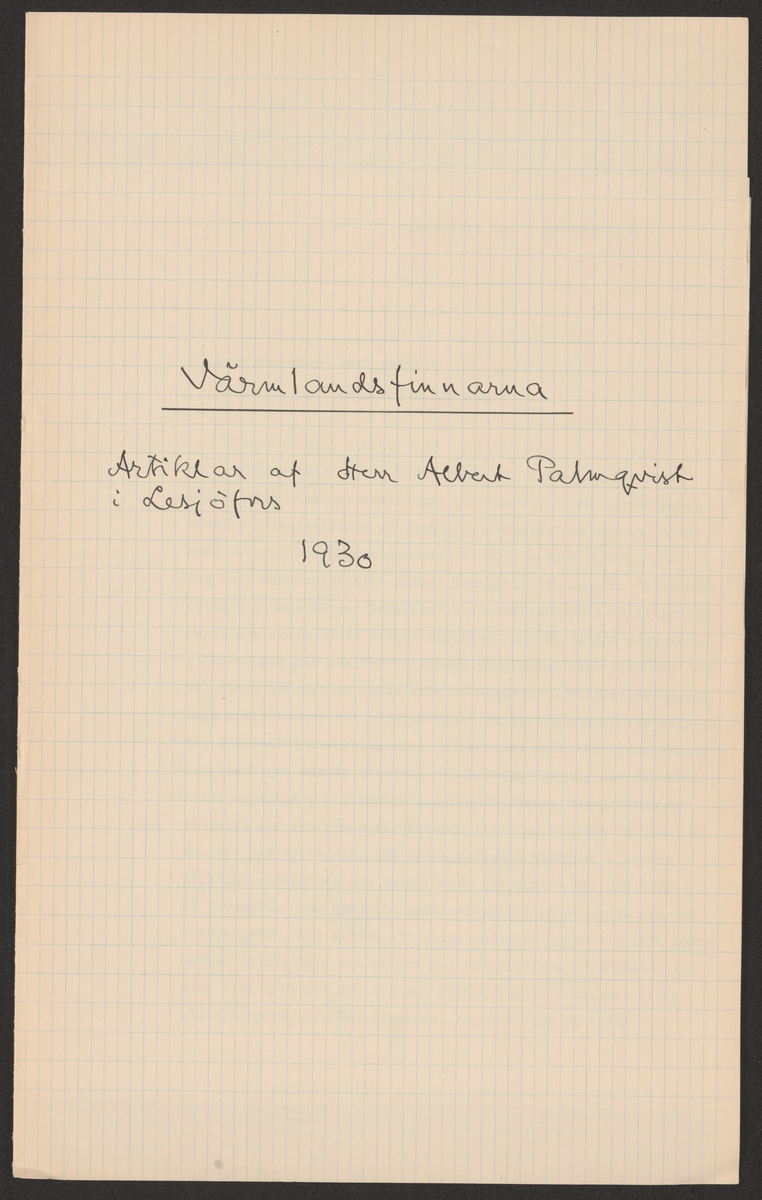 Värmlandsfinnarna
Artiklar af Herr Albert Palmqvist
i Lesjöfors
1930